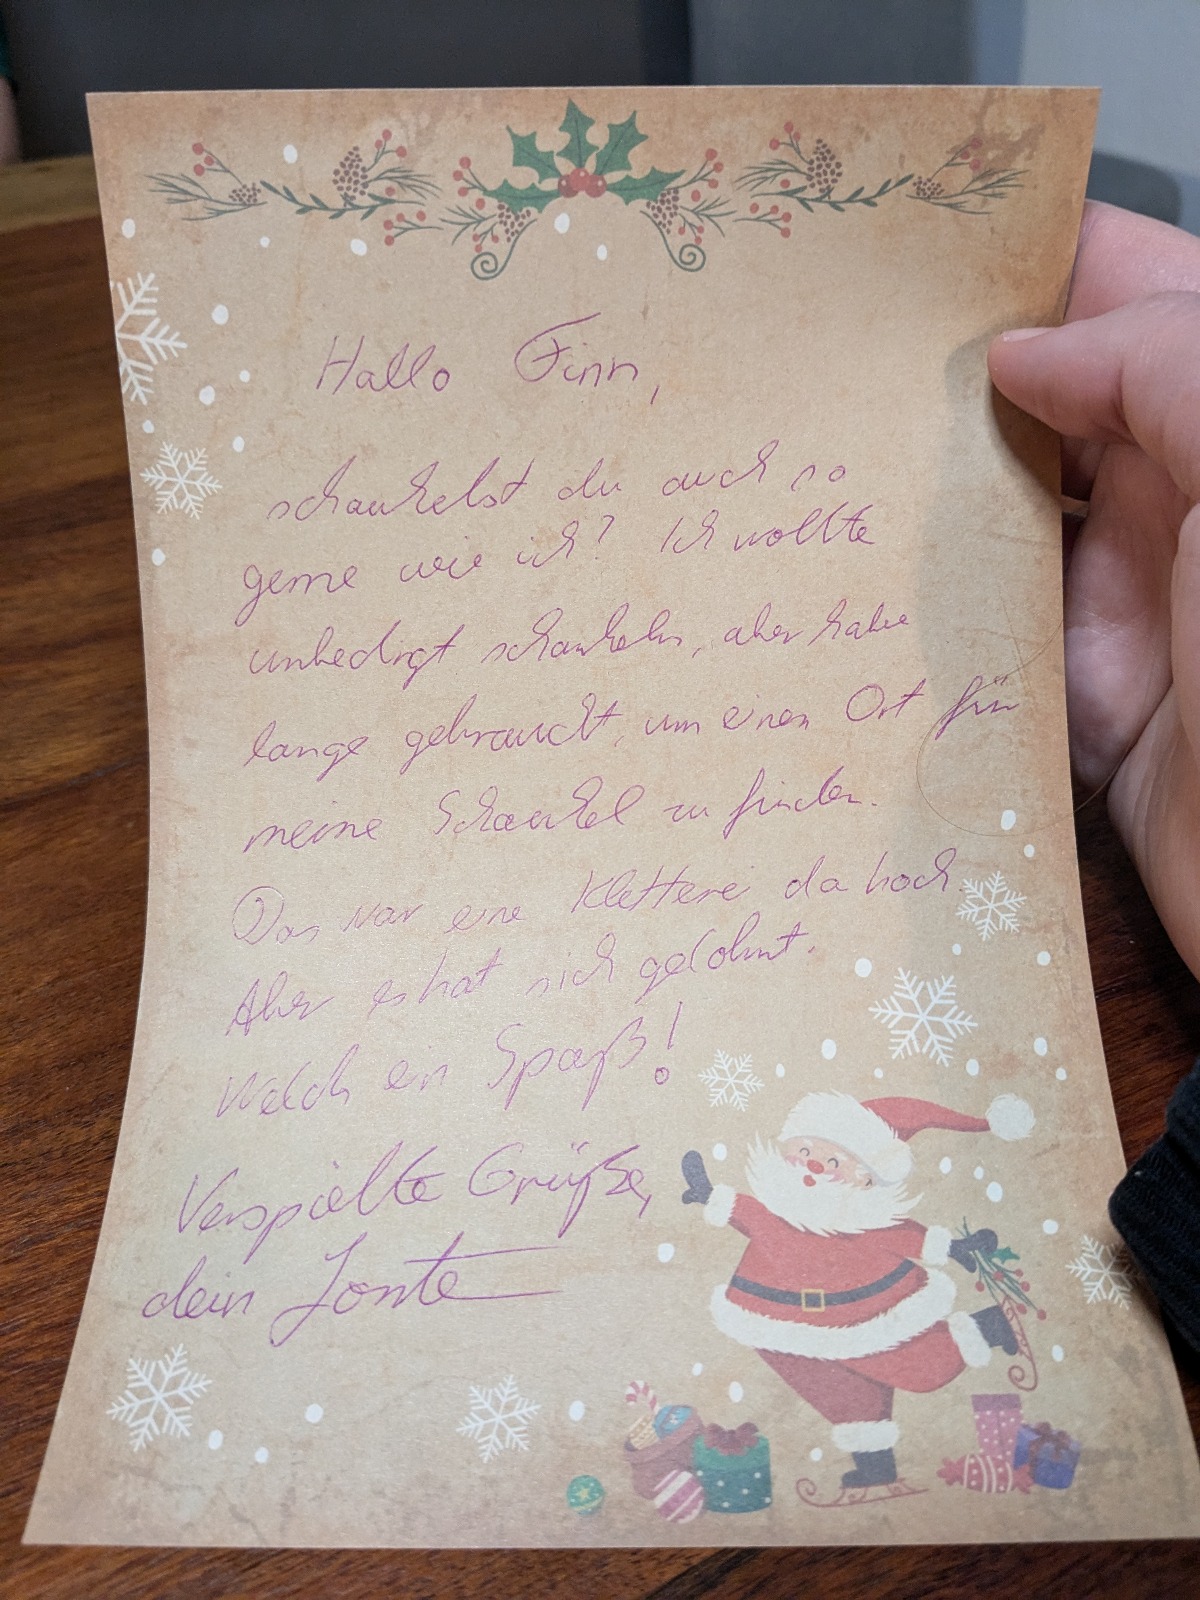 Hallo Finn,
schaukelst du auch so
gerne wie ich? Ich wollte
unbedingt schaukeln, aber habe
lange gebraucht, um einen Ort für
meine Schaukel zu finden.
Das war eine Kletterei da hoch.
Aber es hat sich gelohnt.
Welch ein Spaß!
Verspielte Grüße,
dein Jonte